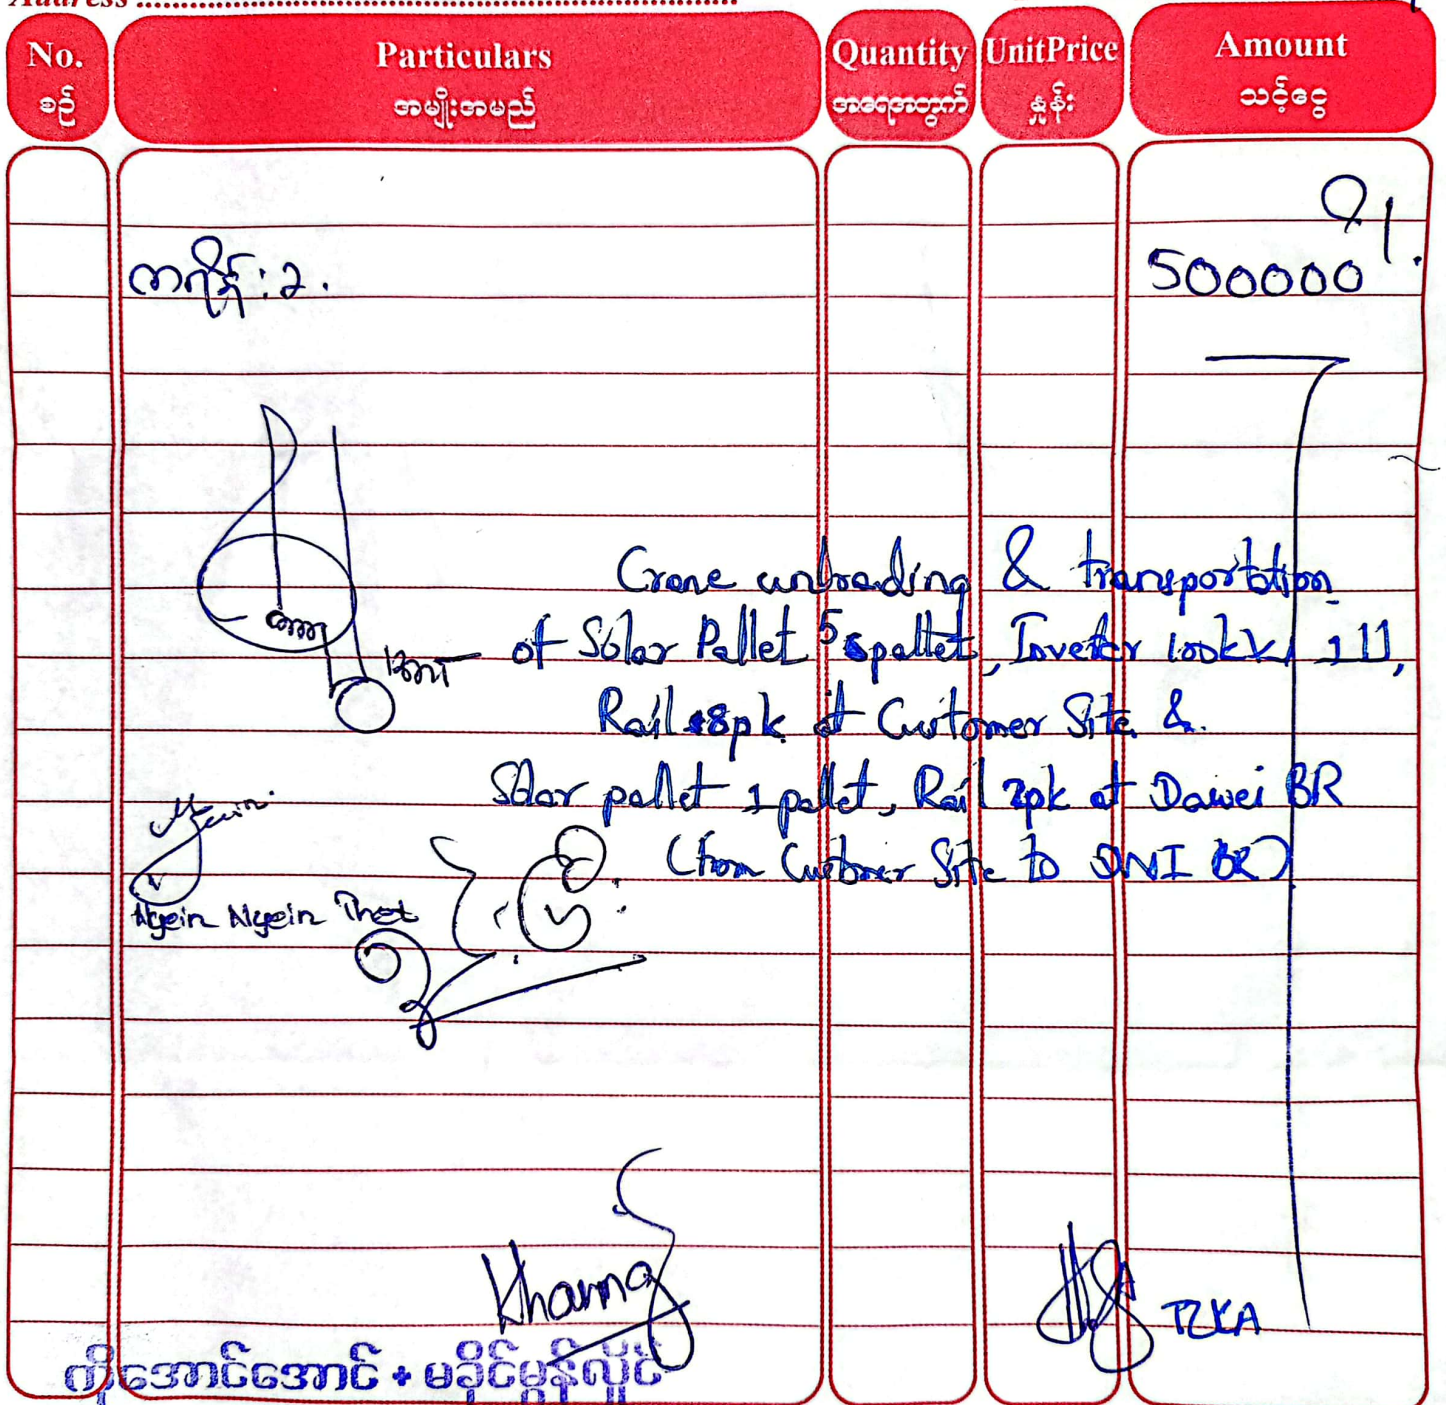 Address
No. Particulars Quantity UnitPrice Amount
စဉ် အမျိုးအမည် အရေအတွက် နှုန်း သင့်ငွေ
500000
Crane unloading & transportation
of Solar Pallet 5 pallet, Inveter 100kW 1
Rail 8pk at Customer Site &
Solar pallet 1 pallet, Rail 2pk at Dawei BR
(from Customer Site to DWI BR)
Nyein Nyein Thet
Khaing
TZKA
ကိုအောင်အောင် + မခိုင်မွန်လှိုင်